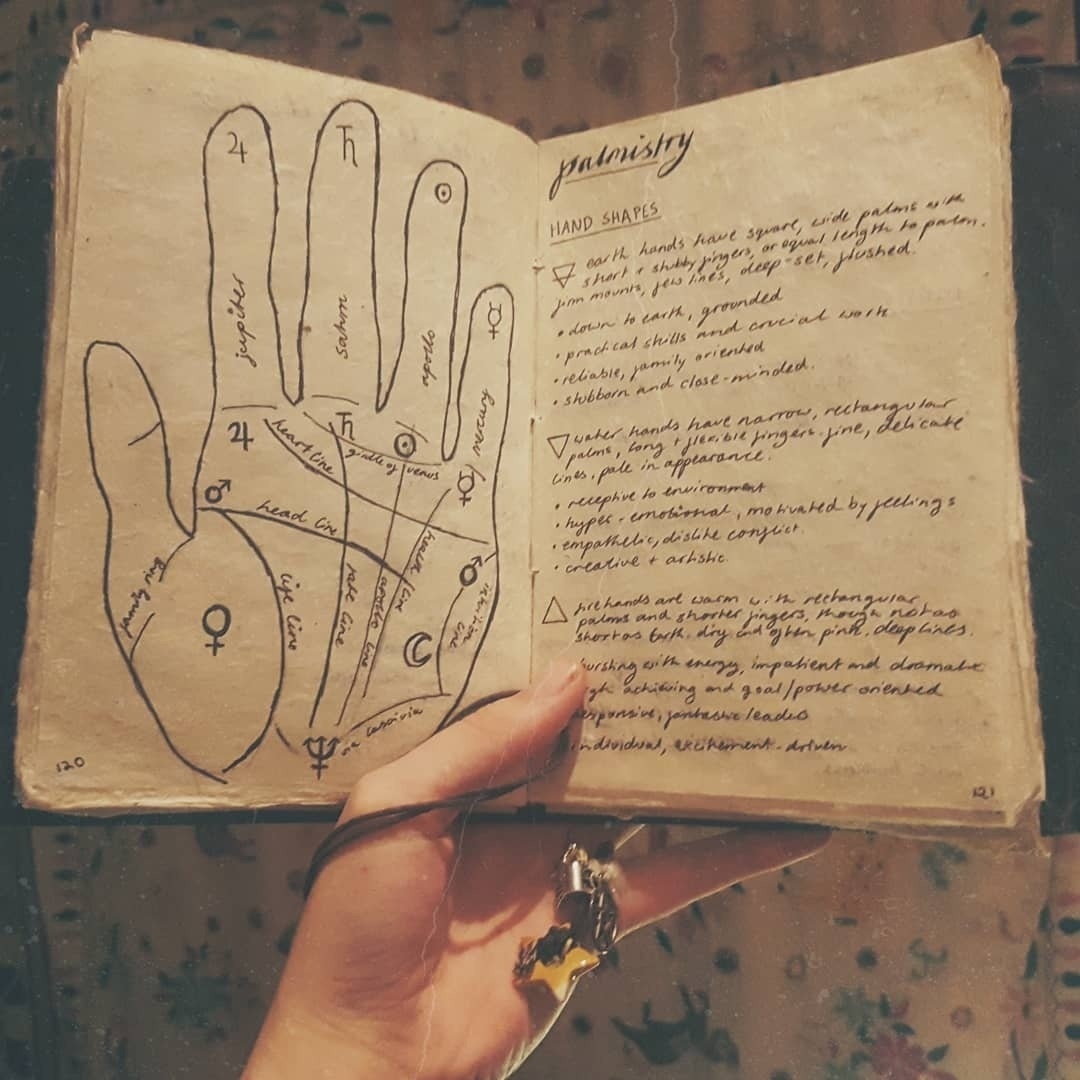 ♃
♄
☉
☿
jupiter
saturn
apollo
mercury
♃
♄
☉
☿
heart line
girdle of venus
♂
head line
♂
family ring
♀
life line
fate line
apollo line
health line
☾
intuition line
via lascivia
♆
120
palmistry
HAND SHAPES
earth hands have square, wide palms with
short + stubby fingers, or equal length to palm.
firm mounts, few lines, deep-set, flushed.
• down to earth, grounded
• practical skills and crucial work
• reliable, family oriented
• stubborn and close-minded.
water hands have narrow, rectangular
palms, long + flexible fingers. fine, delicate
lines, pale in appearance.
• receptive to environment
• hyper-emotional, motivated by feelings
• empathetic, dislike conflict.
• creative + artistic.
fire hands are warm with rectangular
palms and shorter fingers, though not as
short as Earth. dry and often pink. deep lines.
bursting with energy, impatient and dramatic
achieving and goal/power oriented
responsive, fantastic leader
individual, excitement-driven
121